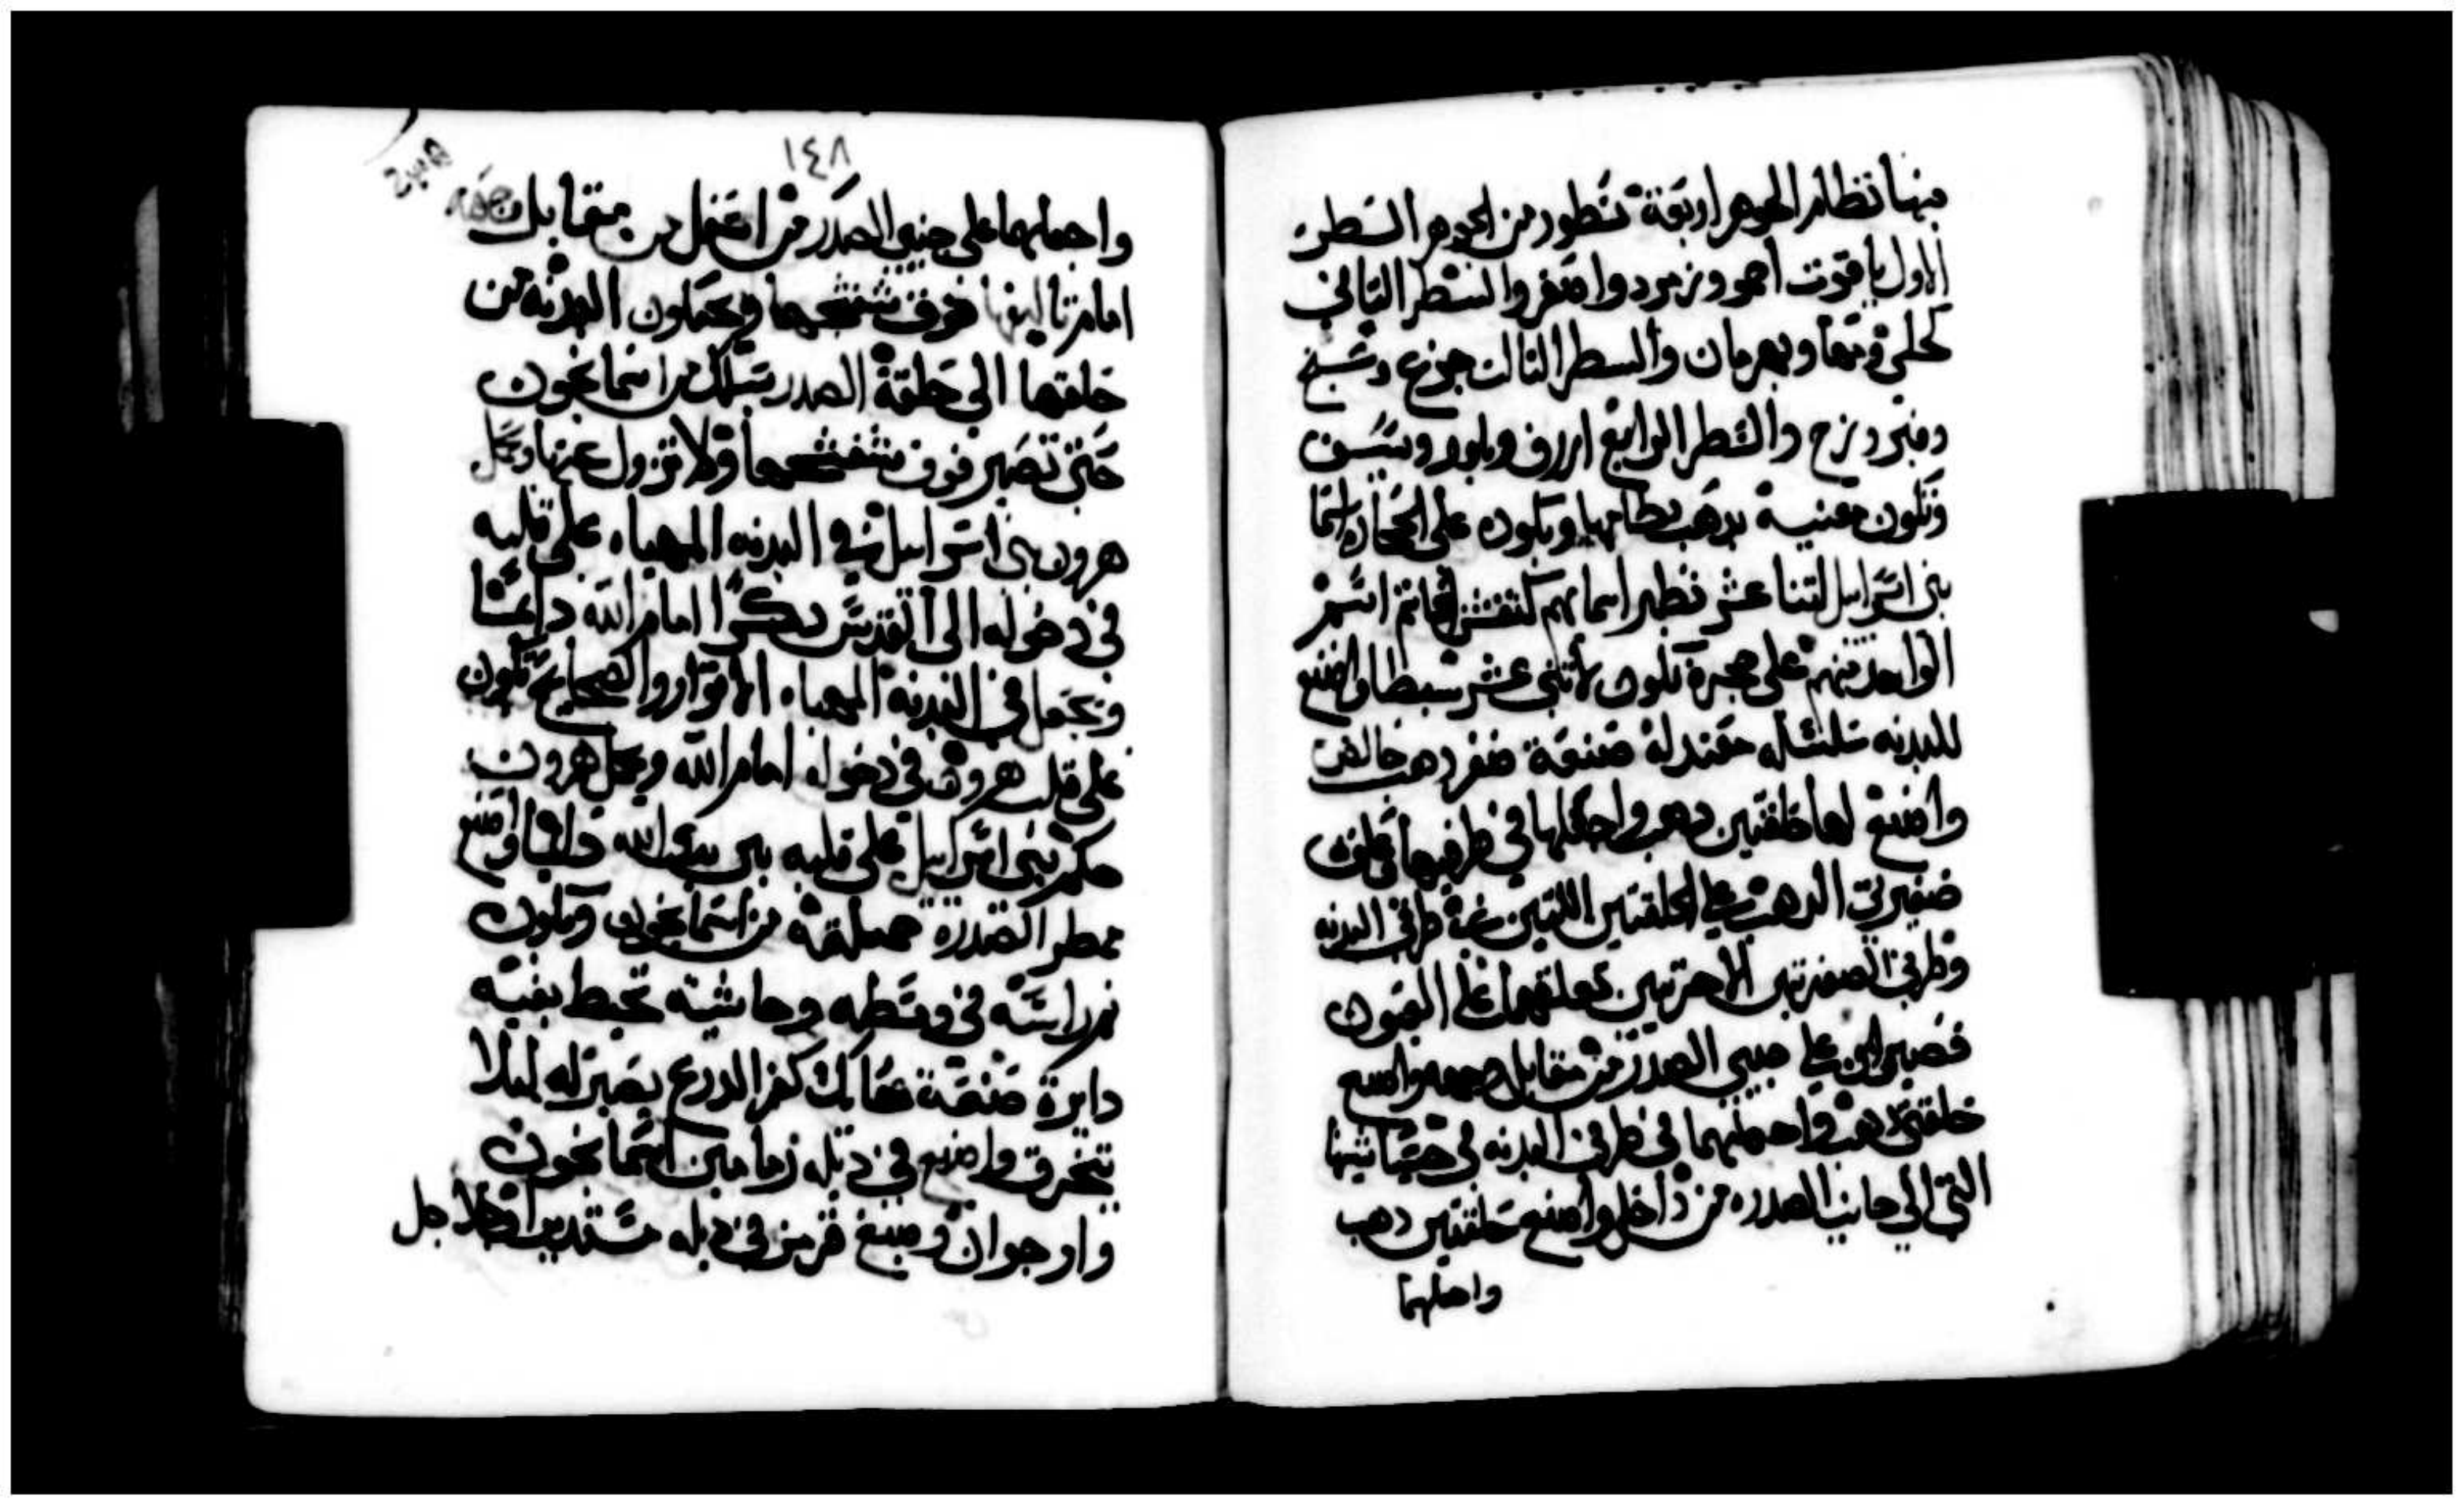 فيها نظام الجوهر اربعة سطور من الجوهر السطر
الاول ياقوت احمر وزمرد واصفر والسطر الثاني
كحلي ومها وبهرمان والسطر الثالث جزع وسبج
وفيروزج والسطر الرابع ازرق وبلور ويشف
وتكون معنية بذهب نظامها وتكون على الحجارة اسما
بني اسرايل اثنا عشر نظير اسمايهم كنقش الخاتم اسم
الواحد منهم على حجرة تكون لاثني عشر سبطا واصنع
للبدنه سلسله صنعة ضفر دهب خالص
واصنع لها حلقتين دهب واجعلها في طرفيها
ضفيرتي الدهب على الحلقتين اللتين في طرفي البدنه
وطرفي الضفرتين الاخرتين تعلقهما على
فصيرهن على جيبي الصدرة من مقابل واصنع
حلقتي دهب واجعلهما في طرفي البدنه في حشايتها
التي الى جانب الصدره من داخل واصنع حلقتين دهب
واجعلهما
١٤٨
واجعلهما على جنبي الصدرة من اسفل من مقابل
امام تاليفها فوق ويجعلون البدنه من
حلقتها الى حلقة الصدرة بسلك من اسمانجون
حتى تصير فوق ولا تزول عنها ويحمل
هرون بني اسرايل في البدنه المهياه على قلبه
في دخوله الى القدس ذكرا امام الله دايما
وتجعل في البدنة المهياه الانوار والصحايح تكون
على قلب هرون في دخوله امام الله ويحمل هرون
حكم بني اسرايل على قلبه بين يدي الله دايما واصنع
ممطر الصدره من اسمانجون ويكون
راسه في وسطه وحاشيته تحيط بفيه
دايرة صنعة حايك كفم الدرع يصير له ليلا
يتخرق واصنع في ذيله رمامين اسمانجون
وارجوان وصبغ قرمز في ذيله مستديرا وجلاجل